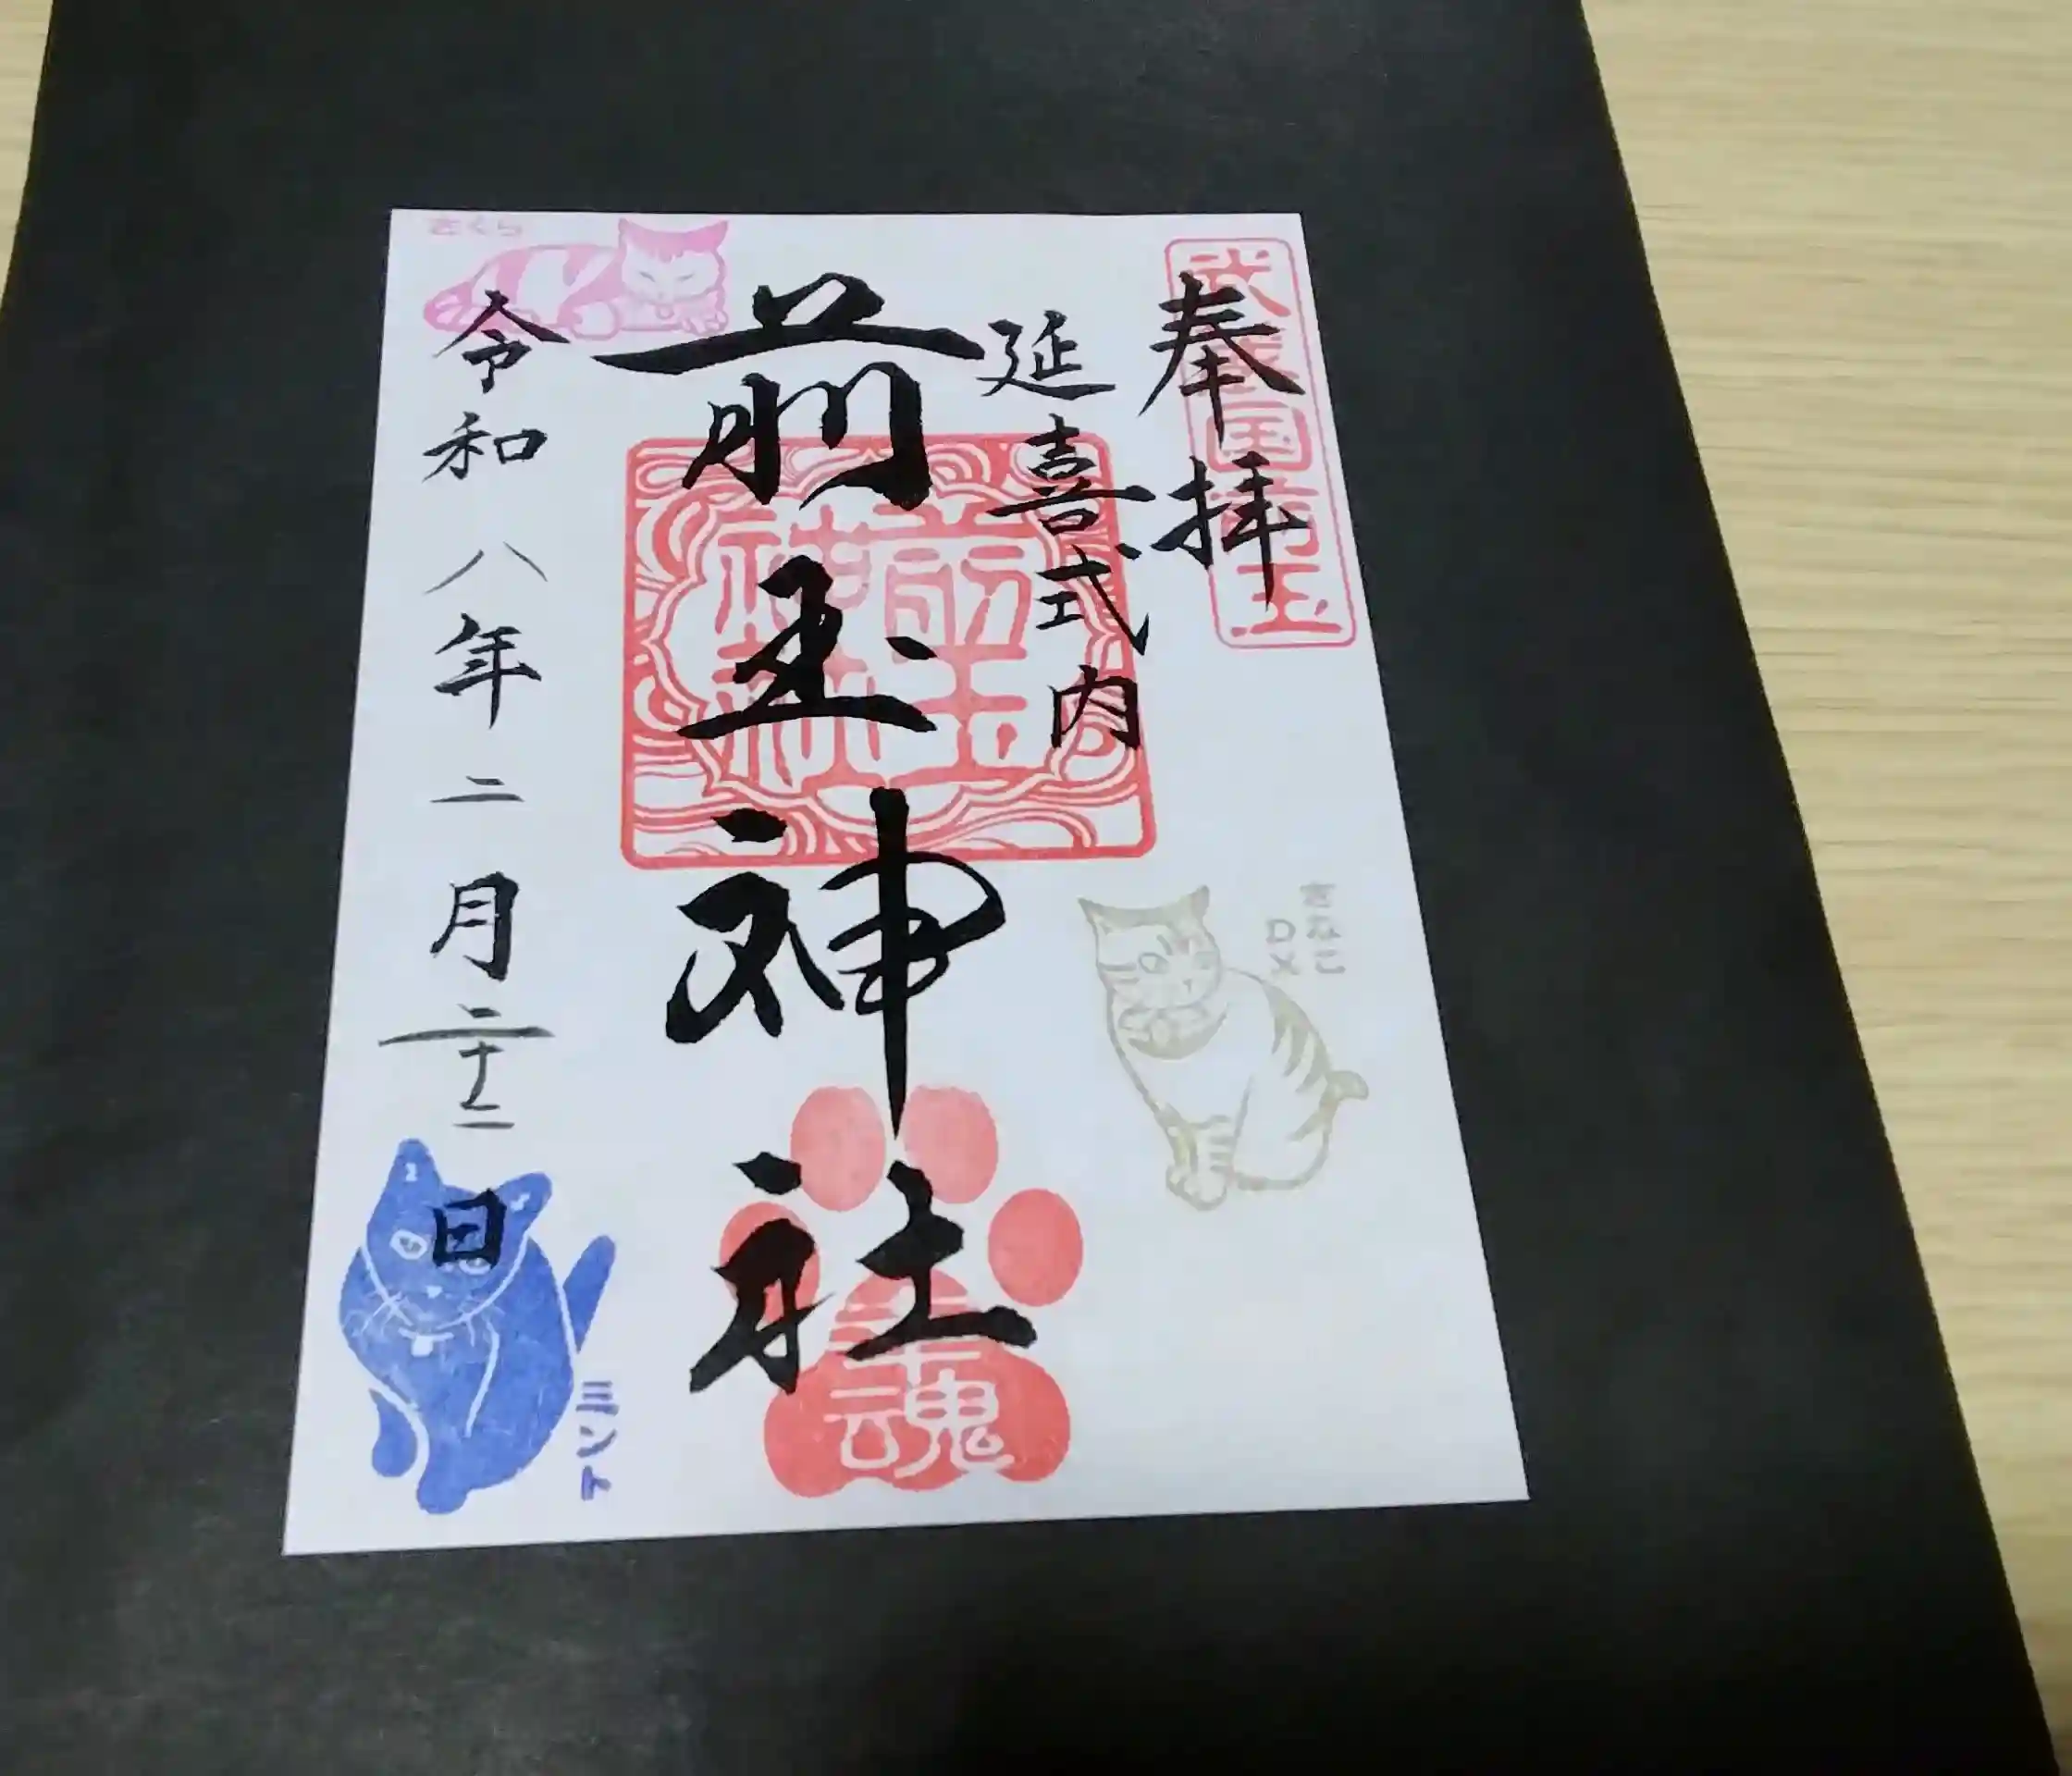 奉拝
武蔵国前玉
延喜式内
前玉神社
前玉神社
幸魂
きなこ
DX
さくら
令和八年二月二十二日
ミント